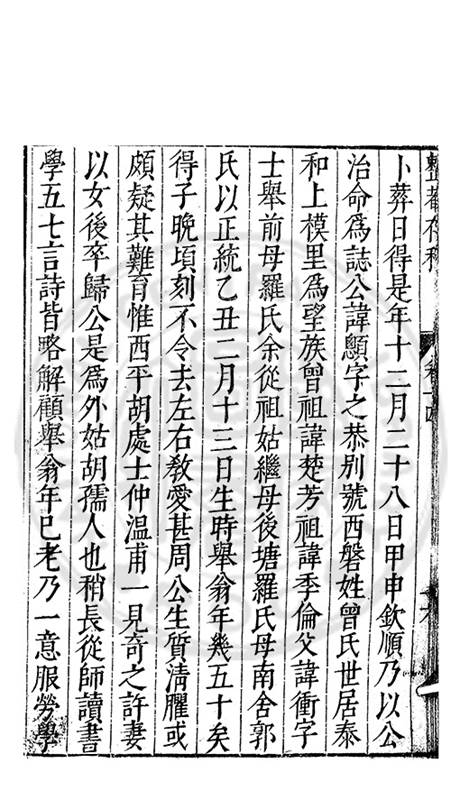 整菴存稿
卷十四
十六
卜葬日得是年十二月二十八日甲申欽順乃以公
治命爲誌公諱顒字之恭别號西磐姓曾氏世居泰
和上模里爲望族曾祖諱楚芳祖諱季倫父諱衝字
士舉前母羅氏余從祖姑繼母後塘羅氏母南舍郭
氏以正統乙丑二月十三日生時舉翁年幾五十矣
得子晚頃刻不令去左右敎愛甚周公生質淸臞或
頗疑其難育惟西平胡處士仲温甫一見奇之許妻
以女後卒歸公是爲外姑胡孺人也稍長從師讀書
學五七言詩皆略解顧舉翁年已老乃一意服勞學